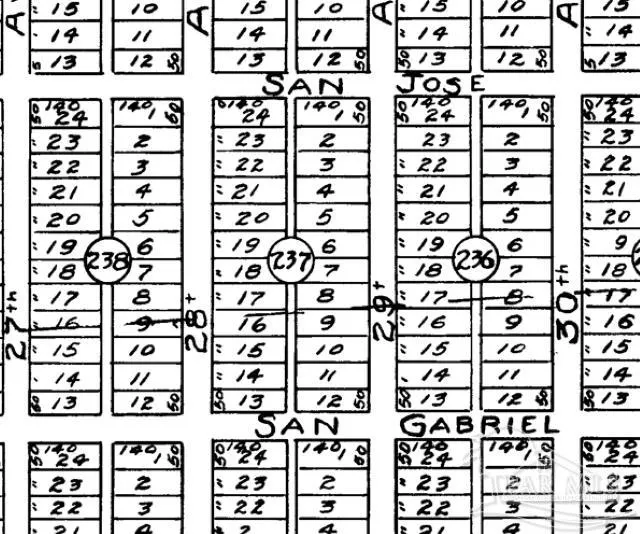 A A A A
15 15 10 15 10 15
14 14 11 14 11 14
13 12 50 13 12 50 13 12 50 13
SAN JOSE
50 140 140 50 140 140 50 50 140 140 50 50 140
24 1 24 1 24 1 24
23 2 23 2 23 2 23
22 3 22 3 22 3 22
21 4 21 4 21 4 21
20 5 20 5 20 5 20
19 6 19 6 19 6 9
238 237 236
18 7 18 7 18 7 18
17 8 17 8 17 8 17
27th 28t 29t 30th
16 9 16 9 16 9 16
15 10 15 10 15 10 15
14 11 14 11 14 11 14
13 12 50 13 12 50 13 12 50 13
SAN GABRIEL
50 140 140 50 140 140 50 140 140 50 140
24 1 24 1 24 1 24
23 2 23 2 23 2 23
22 3 22 3 22 3 22
21 4 2 4 21 4 21